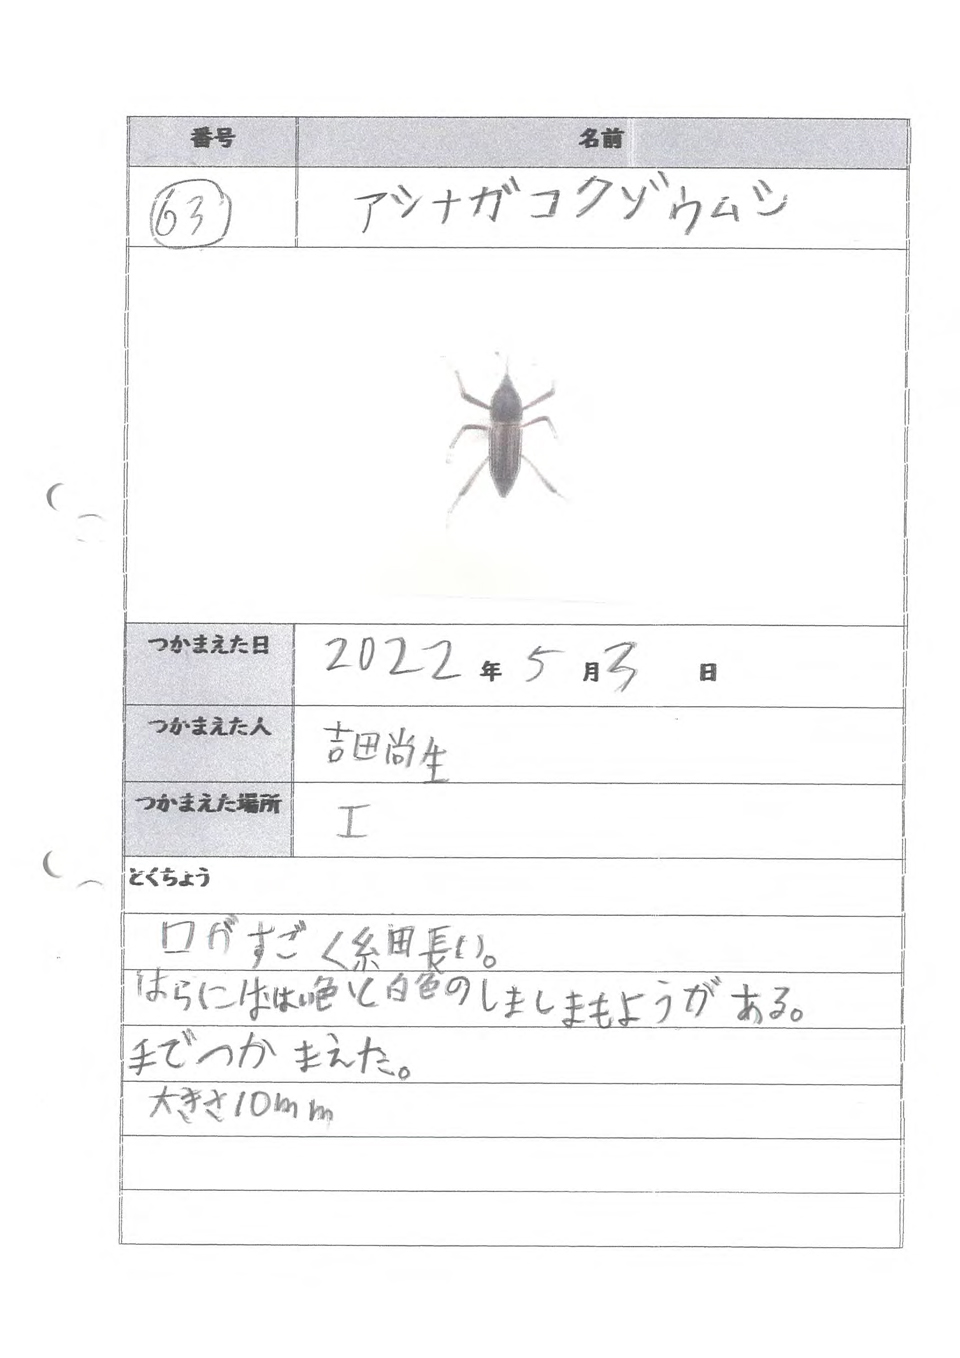 番号 名前
63 アシナガコクゾウムシ
つかまえた日 2022 年 5 月 3 日
つかまえた人 吉田尚生
つかまえた場所 工
とくちょう
口がすごく細長い。
はらにははい色と白色のしましまもようがある。
手でつかまえた。
大きさ10mm